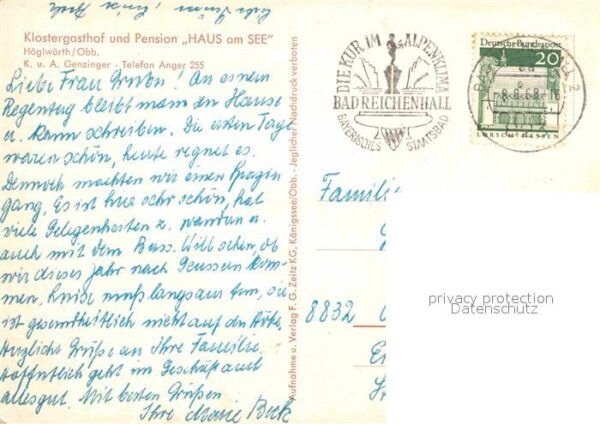 Klostergasthof und Pension „HAUS am SEE"
Höglwörth/Obb.
K. u. A. Genzinger - Telefon Anger 255
Liebe Frau ! An einem
Regentag bleibt man im Hause
u. kann schreiben. Die ersten Tage
waren schön, heute regnet es.
Dennoch machten wir einen Spazier
gang. Es ist hier sehr schön, hat
viele Gelegenheiten z. wandern u.
auch mit dem Bus. Will sehen, ob
wir dieses Jahr nach kom-
men. muß langsam tun, sie
ist gesundheitlich nicht auf der Höhe.
Herzliche Grüße an Ihre Familie.
Hoffentlich geht im Geschäft auch
alles gut. Mit besten Grüßen
Ihre Marie Beck
Aufnahme u. Verlag F. G. Zeitz KG, Königssee/Obb. - Jeglicher Nachdruck verboten
DIE KUR IM ALPENKLIMA
BAD REICHENHALL
BAYERISCHES STAATSBAD
Deutsche Bundespost
20
LORSCH/HESSEN
-8.6.68-
Famili
8832
privacy protection
Datenschutz